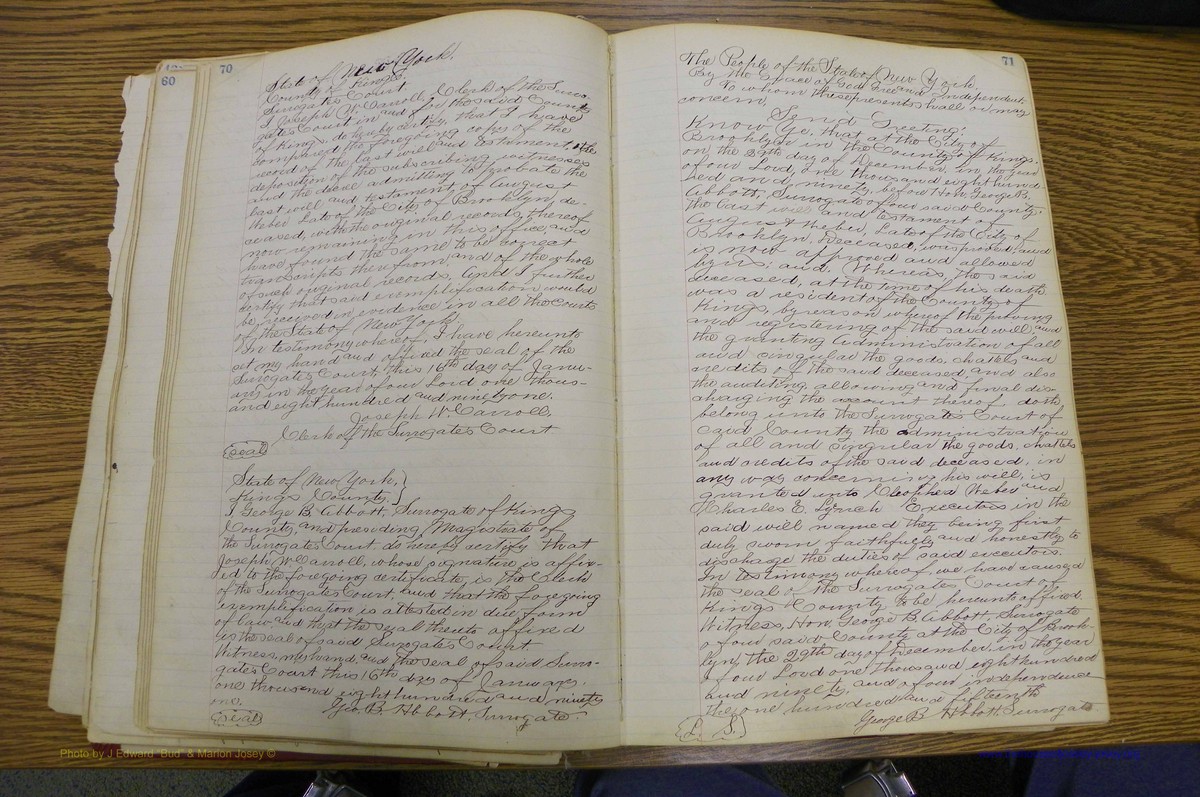 60
70
State of New York.
County of Kings.
Surrogates Court.
I Joseph W. Carroll, Clerk of the Surro-
gates Court in and for the said County
of Kings do hereby certify, that I have
compared the foregoing copies of the
record of the last will and testament, the
deposition of the subscribing witnesses
and the decree admitting to probate the
last will and testament of August
Weber late of the City of Brooklyn, de-
ceased, with the original records, thereof
now remaining in this office, and
have found the same to be correct
transcripts therefrom, and of the whole
of such original records, And I further
certify that said exemplification would
be received in evidence in all the Courts
of the State of New York.
In testimony whereof, I have hereunto
set my hand and affixed the seal of the
Surrogates Court, this 16th day of Janu-
ary in the year of our Lord one thous-
and eight hundred and ninety one.
Joseph W. Carroll,
Clerk of the Surrogates Court
(seal)
State of New York, }
Kings County, }
I George B. Abbott, Surrogate of Kings
County, and presiding Magistrate of
the Surrogates Court, do hereby certify that
Joseph W. Carroll, whose signature is affix-
ed to the foregoing certificate, is the Clerk
of the Surrogates Court, and that the foregoing
exemplification is attested in due form
of law and that the seal thereto affixed
is the seal of said Surrogates Court.
Witness, my hand, and the seal of said Surro-
gates Court this 16th day of January,
one thousand eight hundred and ninety
one.
Geo. B. Abbott, Surrogate.
(seal)
71
The People of the State of New York.
By the Grace of God Free and Independent
To whom these presents shall or may
concern,
Send Greeting:
Know Ye, that at the City of
Brooklyn in the County of Kings,
on the 29th day of December, in the year
of our Lord, one thousand eight hund-
red and ninety, before Hon. George B.
Abbott, Surrogate of our said County,
the last will and testament of
August Weber, Late of the City of
Brooklyn, Deceased, was proved, and
is now approved and allowed
by us; and, Whereas, the said
deceased, at the time of his death
was a resident of the County of
Kings, by reason whereof the proving
and registering of the said will, and
the granting Administration of all
and singular the goods, chattels and
credits of the said deceased, and also
the auditing, allowing and final dis-
charging the account thereof doth
belong unto the Surrogates Court of
said County the administration
of all and singular the goods, chattels
and credits of the said deceased, in
any way concerning his will, is
granted unto Cleophea Weber and
Charles E. Lynch Executors in the
said will named they being first
duly sworn faithfully and honestly to
discharge the duties of said executors.
In testimony whereof we have caused
the seal of the Surrogates Court of
Kings County to be hereunto affixed.
Witness, Hon. George B. Abbott Surrogate
of our said County at the City of Brook-
lyn, the 29th day of December, in the year
of our Lord one thousand eight hundred
and ninety, and of our independence
the one hundred and fifteenth
George B. Abbott, Surrogate
{L. S.}
Photo by J Edward "Bud" & Marion Josey ©